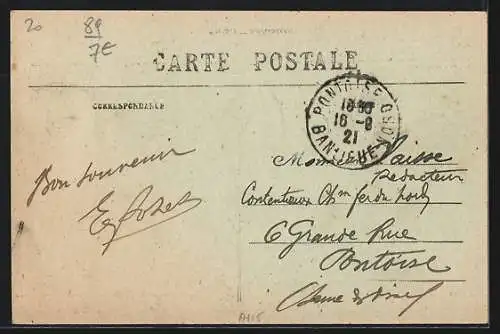 20
89
7€
CARTE POSTALE
CORRESPONDANCE
PONTOISE GSRO
18 30
16 - 9
21
BANLIEUE NORD
Bon souvenir
Monsieur Vaisse
Rédacteur
Contentieux Ch^m fer du Nord
6 Grande Rue
Pontoise
Seine & Oise
A115